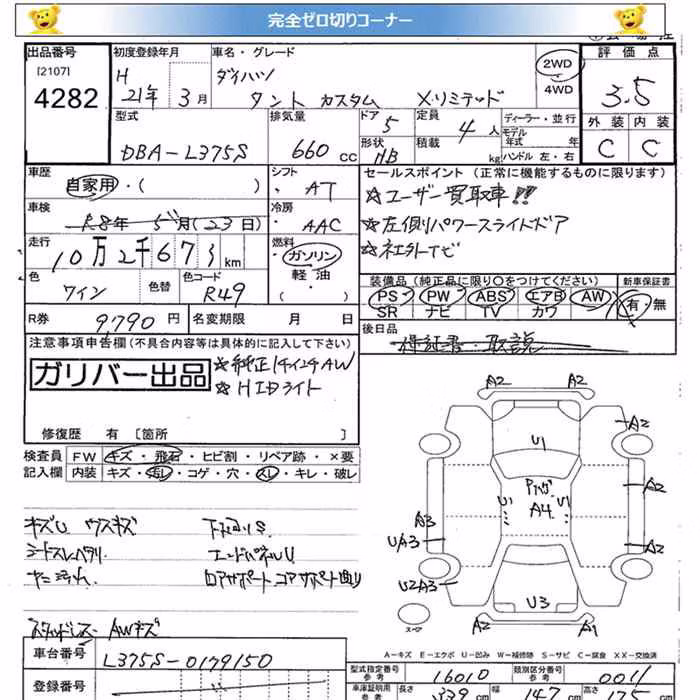 完全ゼロ切りコーナー
出品番号 初度登録年月 車名・グレード 評価点
[2107] H ダイハツ 2WD
4282 21年 3月 タント カスタム Xリミテッド 4WD 3.5
型式 排気量 ドア 定員 ディーラー・並行 外装 内装
DBA-L375S 660cc 5 4人 モデル年式 年 C C
形状 HB 積載 kg ハンドル 左・右
車歴 シフト セールスポイント（正常に機能するものに限ります）
自家用・（ ） AT ☆ユーザー買取車!!
車検 冷房 ☆左側パワースライドドア
R8年 5月（23日） AAC ☆社外ナビ
走行 10万2千673km 燃料 ガソリン
軽油
（ ）
装備品（純正品に限り〇をつけてください） 新車保証書
色 ワイン 色替 色コード R49
PS PW ABS エアB AW 有・無
SR ナビ TV カワ
R券 9,790円 名変期限 月 日 後日品 保証書・取説
注意事項申告欄（不具合内容等は具体的に記入して下さい）
ガリバー出品 ☆純正14インチAW
☆HIDライト
修復歴 有〔箇所 〕
検査員 FW キズ・飛石・ヒビ割・リペア跡・×要
記入欄 内装 キズ・汚れ・コゲ・穴・スレ・キレ・破レ
キズU ウスキズ 下廻りS
シートスレ・ヘタリ エンドパネルU
ヤニ汚れ
スタッドレス AWキズ
A2 A2
A2
U1
A2
U1 U1
A4
A3
UA3 A2
U2A3
U3
スペア
A2 A1
A-キズ E-エクボ U-凹み W-補修跡 S-サビ C-腐食 XX-交換済
車台番号 L375S-0179150
型式指定番号 16010 類別区分番号 0014
登録番号
車庫証明用 長さ 339cm 幅 147cm 高さ 175cm